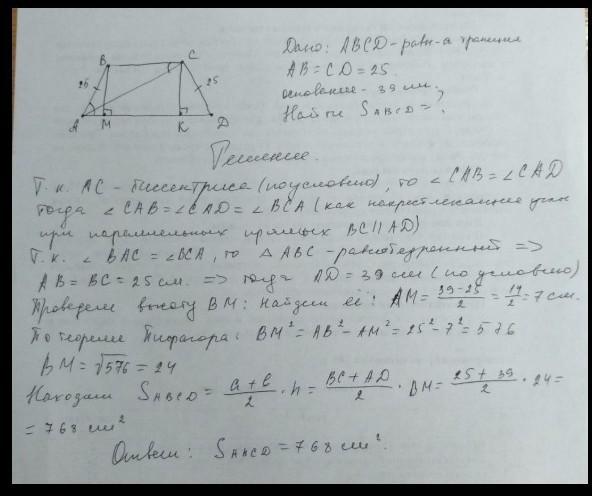 B
C
25
25
A
M
K
D
Дано: ABCD - равн-а трапеция
AB = CD = 25.
основание - 39 см.
Найти S ABCD = ?
Решение.
Т.к. AC - биссектриса (по условию), то ∠CAB = ∠CAD
тогда ∠CAB = ∠CAD = ∠BCA (как накрест лежащие углы
при параллельных прямых BC || AD)
Т.к. ∠BAC = ∠BCA, то △ ABC - равнобедренный =>
AB = BC = 25 см. => тогда AD = 39 см (по условию)
Проведем высоту BM: Найдем её: AM = (39-25)/2 = 14/2 = 7 см.
По теореме Пифагора: BM² = AB² - AM² = 25² - 7² = 576
BM = √576 = 24
Находим S ABCD = (a + b)/2 · h = (BC + AD)/2 · BM = (25 + 39)/2 · 24 =
= 768 см²
Ответ: S ABCD = 768 см².